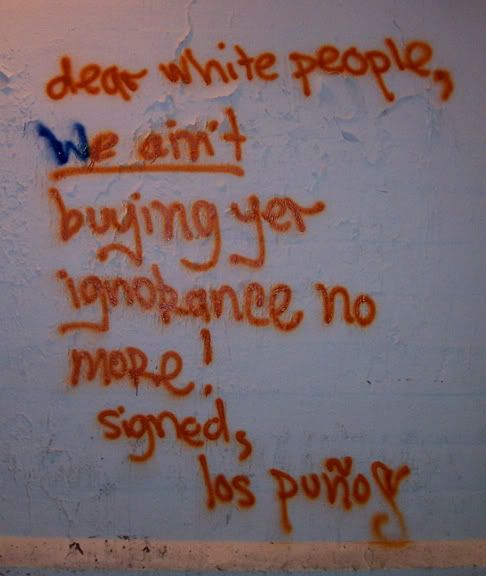 dear white people,
We ain't
buying yer
ignorance no
more!
signed,
los puños